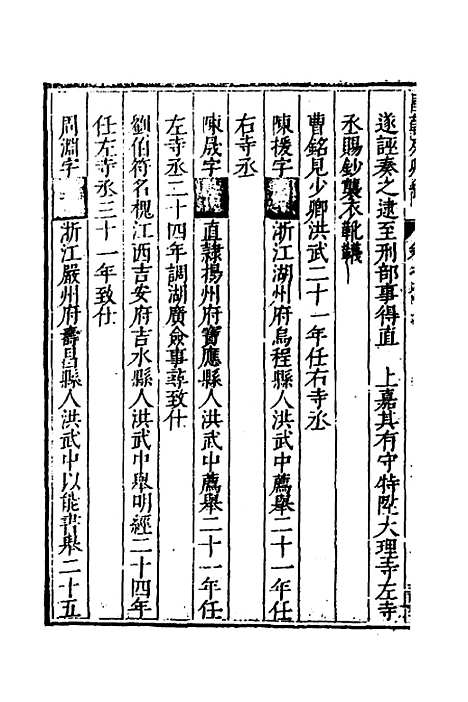 遂誣奏之逮至刑部事得直　上嘉其有守特陞大理寺左寺
丞賜鈔襲衣靴韈
曹銘見少卿洪武二十一年任右寺丞
陳援字浙江湖州府烏程縣人洪武中薦舉二十一年任
右寺丞
陳晟字直隸揚州府寶應縣人洪武中薦舉二十一年任
左寺丞二十四年調湖廣僉事尋致仕
劉伯符名槐江西吉安府吉水縣人洪武中舉明經二十四年
任左寺丞三十一年致仕
周淵字浙江嚴州府壽昌縣人洪武中以能書舉二十五